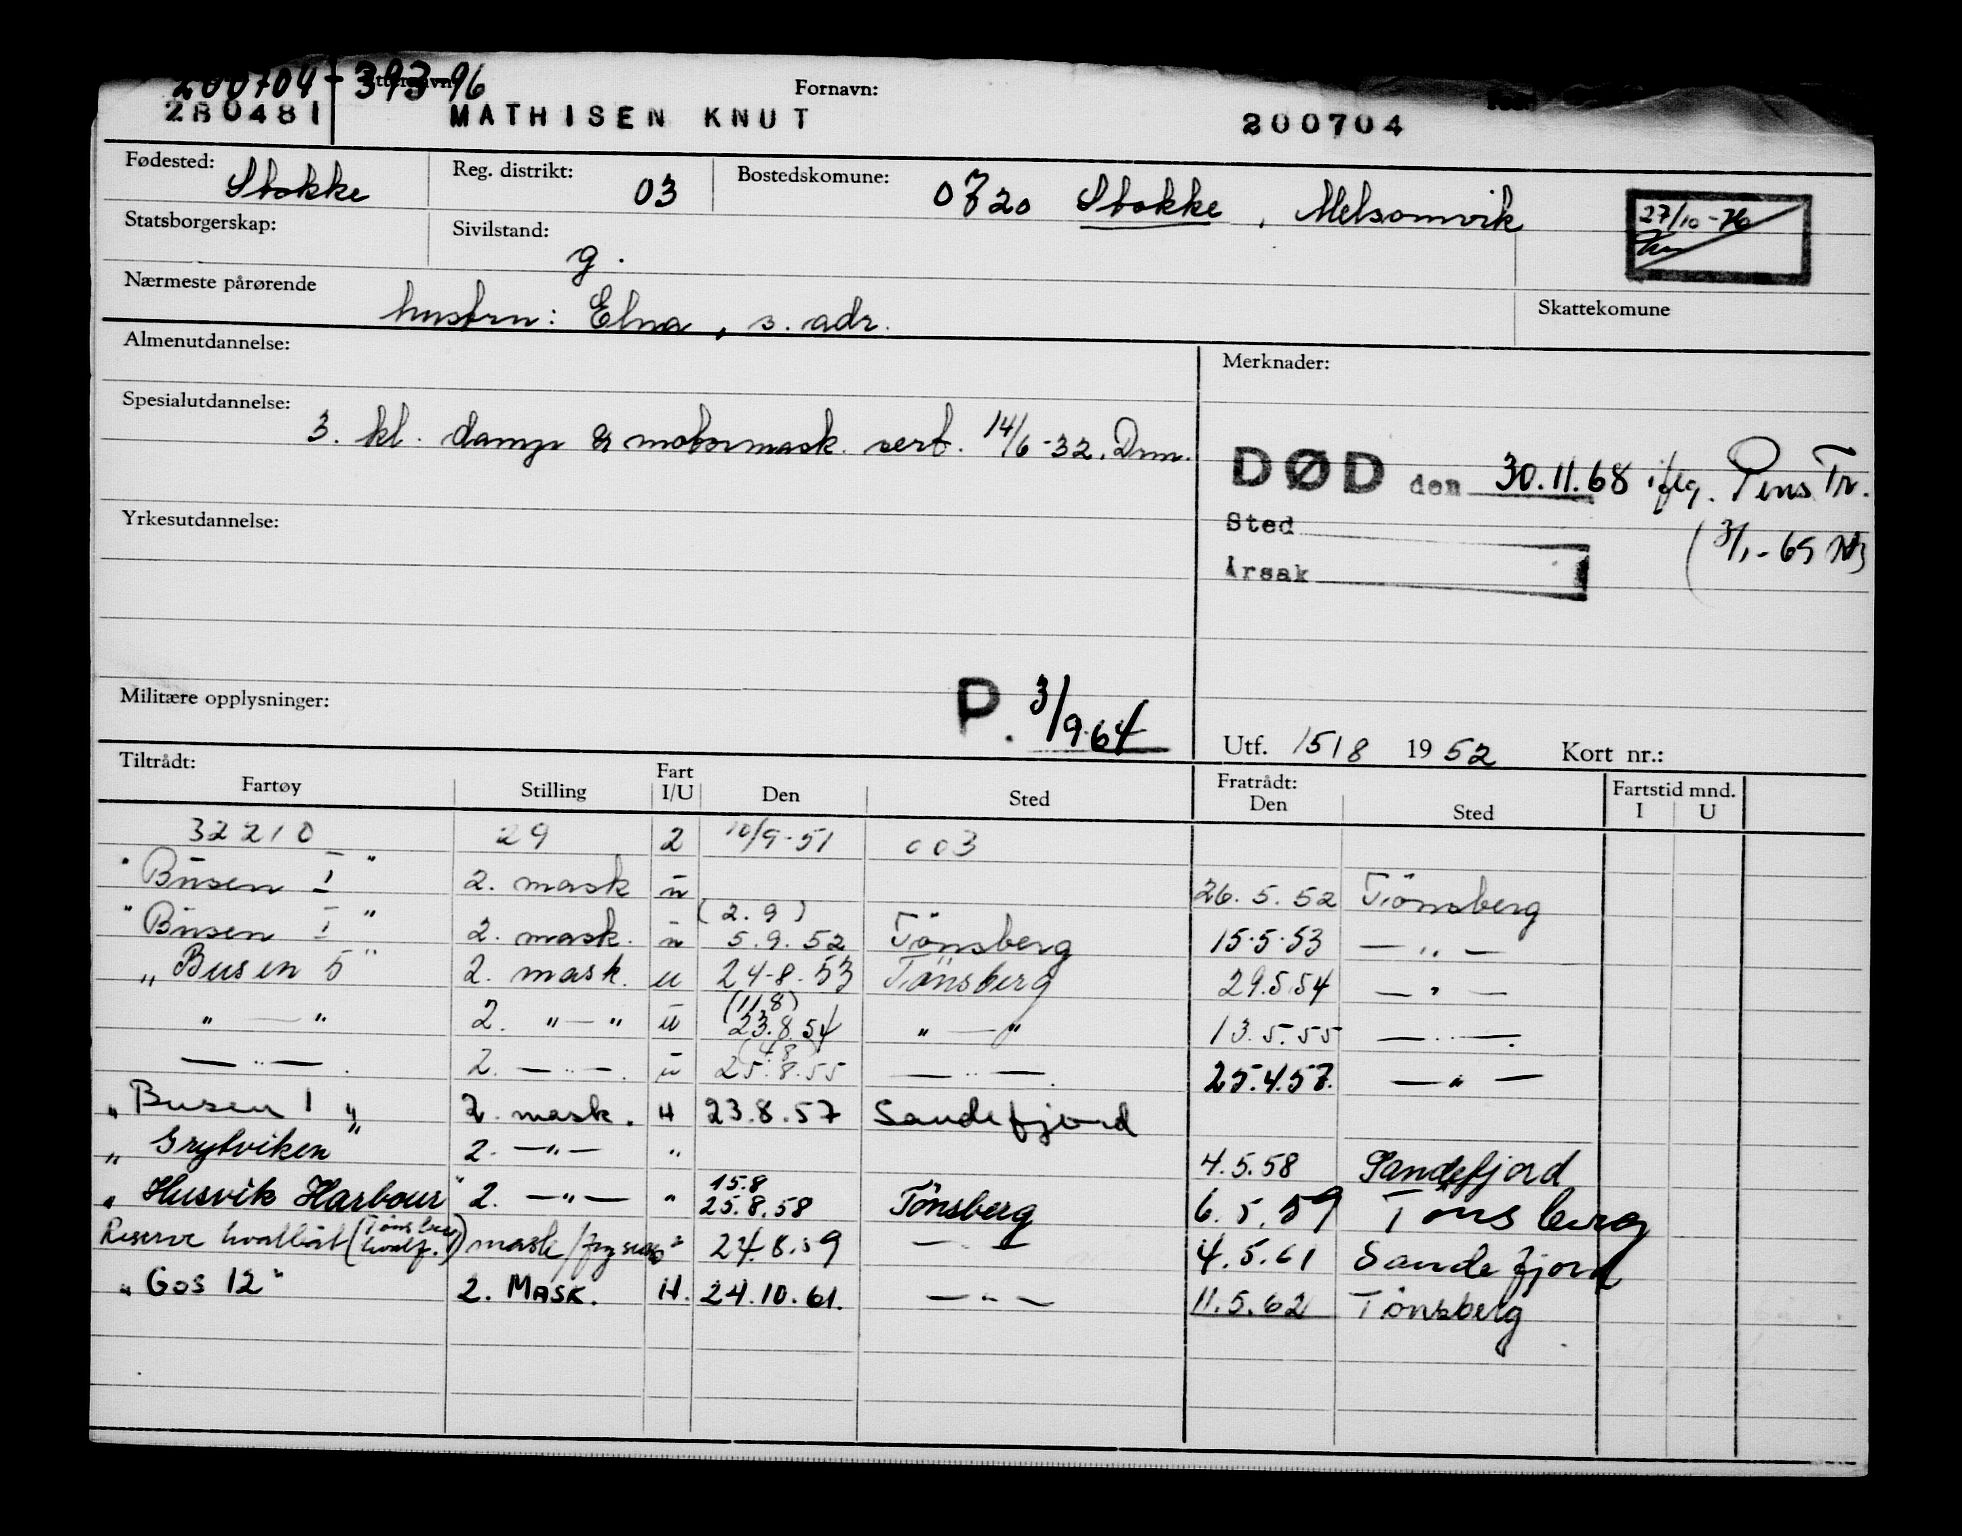 200704-39396
Fornavn:
280481 MATHISEN KNUT 200704
Fødested: Stokke Reg. distrikt: 03 Bostedskomune: 0720 Stokke, Melsomvik
27/10-76
Statsborgerskap: Sivilstand: g.
Nærmeste pårørende hustru: Elna, s. adr. Skattekomune
Almenutdannelse: Merknader:
Spesialutdannelse: 3. kl. damp & motormask. sert. 14/6-32. Drm.
DØD den 30.11.68 iflg. Pens Tr.
Sted (3/1-69
Årsak
Yrkesutdannelse:
Militære opplysninger: P. 3/9.64
Utf. 15/8 1952 Kort nr.:
Tiltrådt: Fratrådt: Fartstid mnd.
Fartøy Stilling Fart I/U Den Sted Den Sted I U
32210 29 2 10/9-51 003
"Busen I" 2. mask u 26.5.52 Tönsberg
"Busen I" 2. mask. u (2.9) 5.9.52 Tönsberg 15.5.53 — " —
"Busen 5" 2. mask. u 24-8.53 Tönsberg 29.5.54 — " —
" — " 2. " — " u (11.8) 23.8.54 " — " 13.5.55 — " —
— " — 2. — " — u (4.8) 25.8.55 — " — 25.4.57. — " —
"Busen 1" 2. mask. u 23.8.57 Sandefjord
"Grytviken" 2. — " — " 4.5.58 Sandefjord
"Husvik Harbour" 2. — " — " 15.8 25.8.58 Tönsberg 6.5.59 Tönsberg
Reserve hvalbåt (Tönsberg hvalf.) mask " 24.8.59 — " — 4.5.61 Sandefjord
"Gos 12" 2. MASK. H. 24.10.61. — " — 11.5.62 Tönsberg